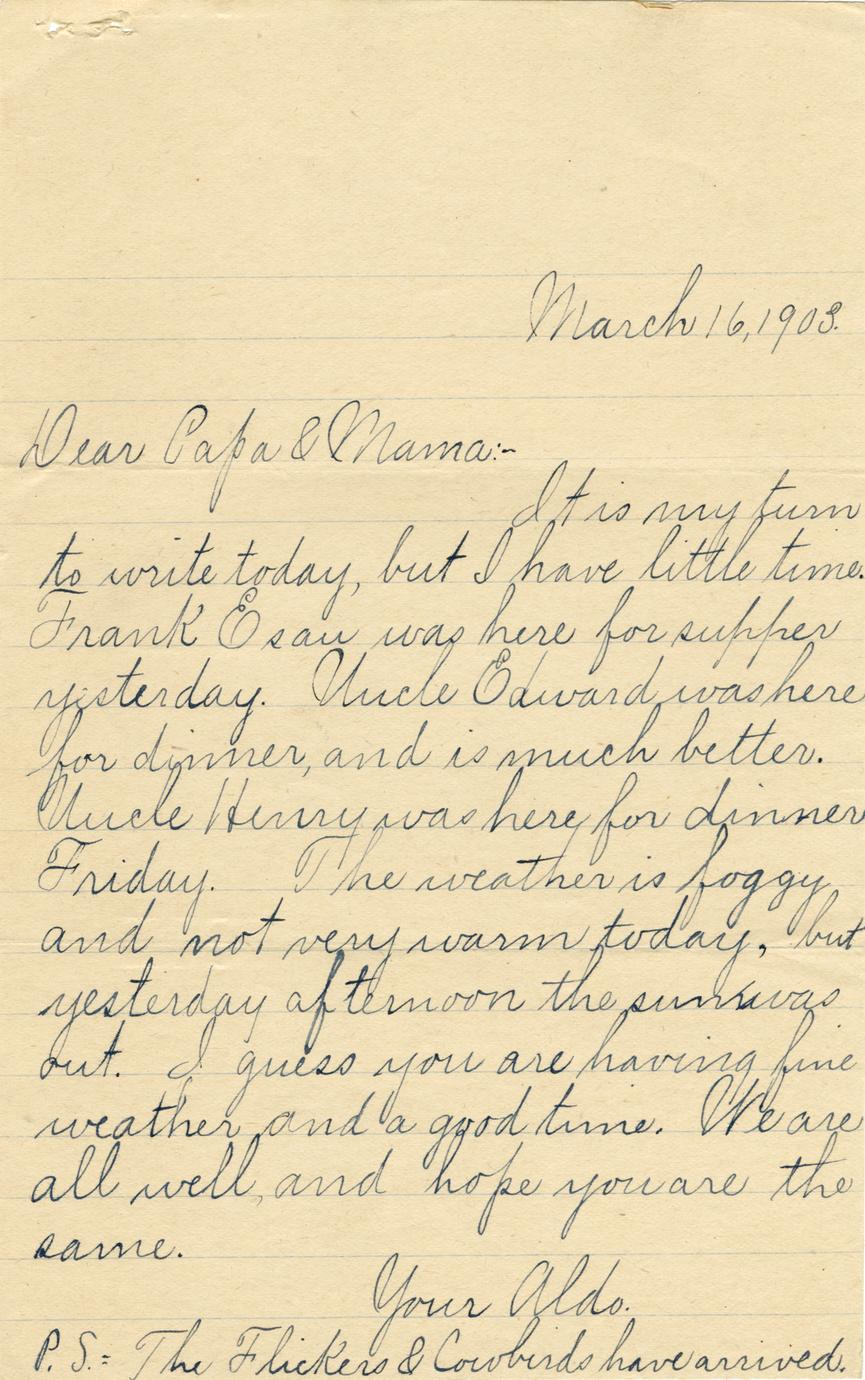 March 16, 1903.
Dear Papa & Mama:-
It is my turn
to write today, but I have little time.
Frank Esau was here for supper
yesterday. Uncle Edward was here
for dinner, and is much better.
Uncle Henry was here for dinner
Friday. The weather is foggy
and not very warm today, but
yesterday afternoon the sun was
out. I guess you are having fine
weather and a good time. We are
all well, and hope you are the
same.
Your Aldo.
P.S.= The Flickers & Cowbirds have arrived.